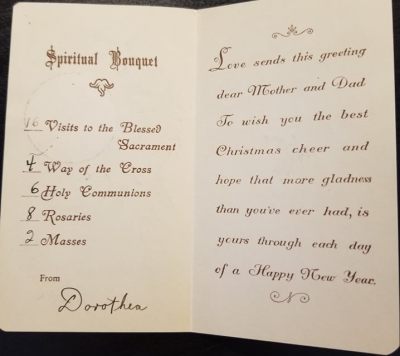 Spiritual Bouquet
16 Visits to the Blessed
Sacrament
4 Way of the Cross
6 Holy Communions
8 Rosaries
2 Masses
From
Dorothea
Love sends this greeting
dear Mother and Dad
To wish you the best
Christmas cheer and
hope that more gladness
than you've ever had, is
yours through each day
of a Happy New Year.